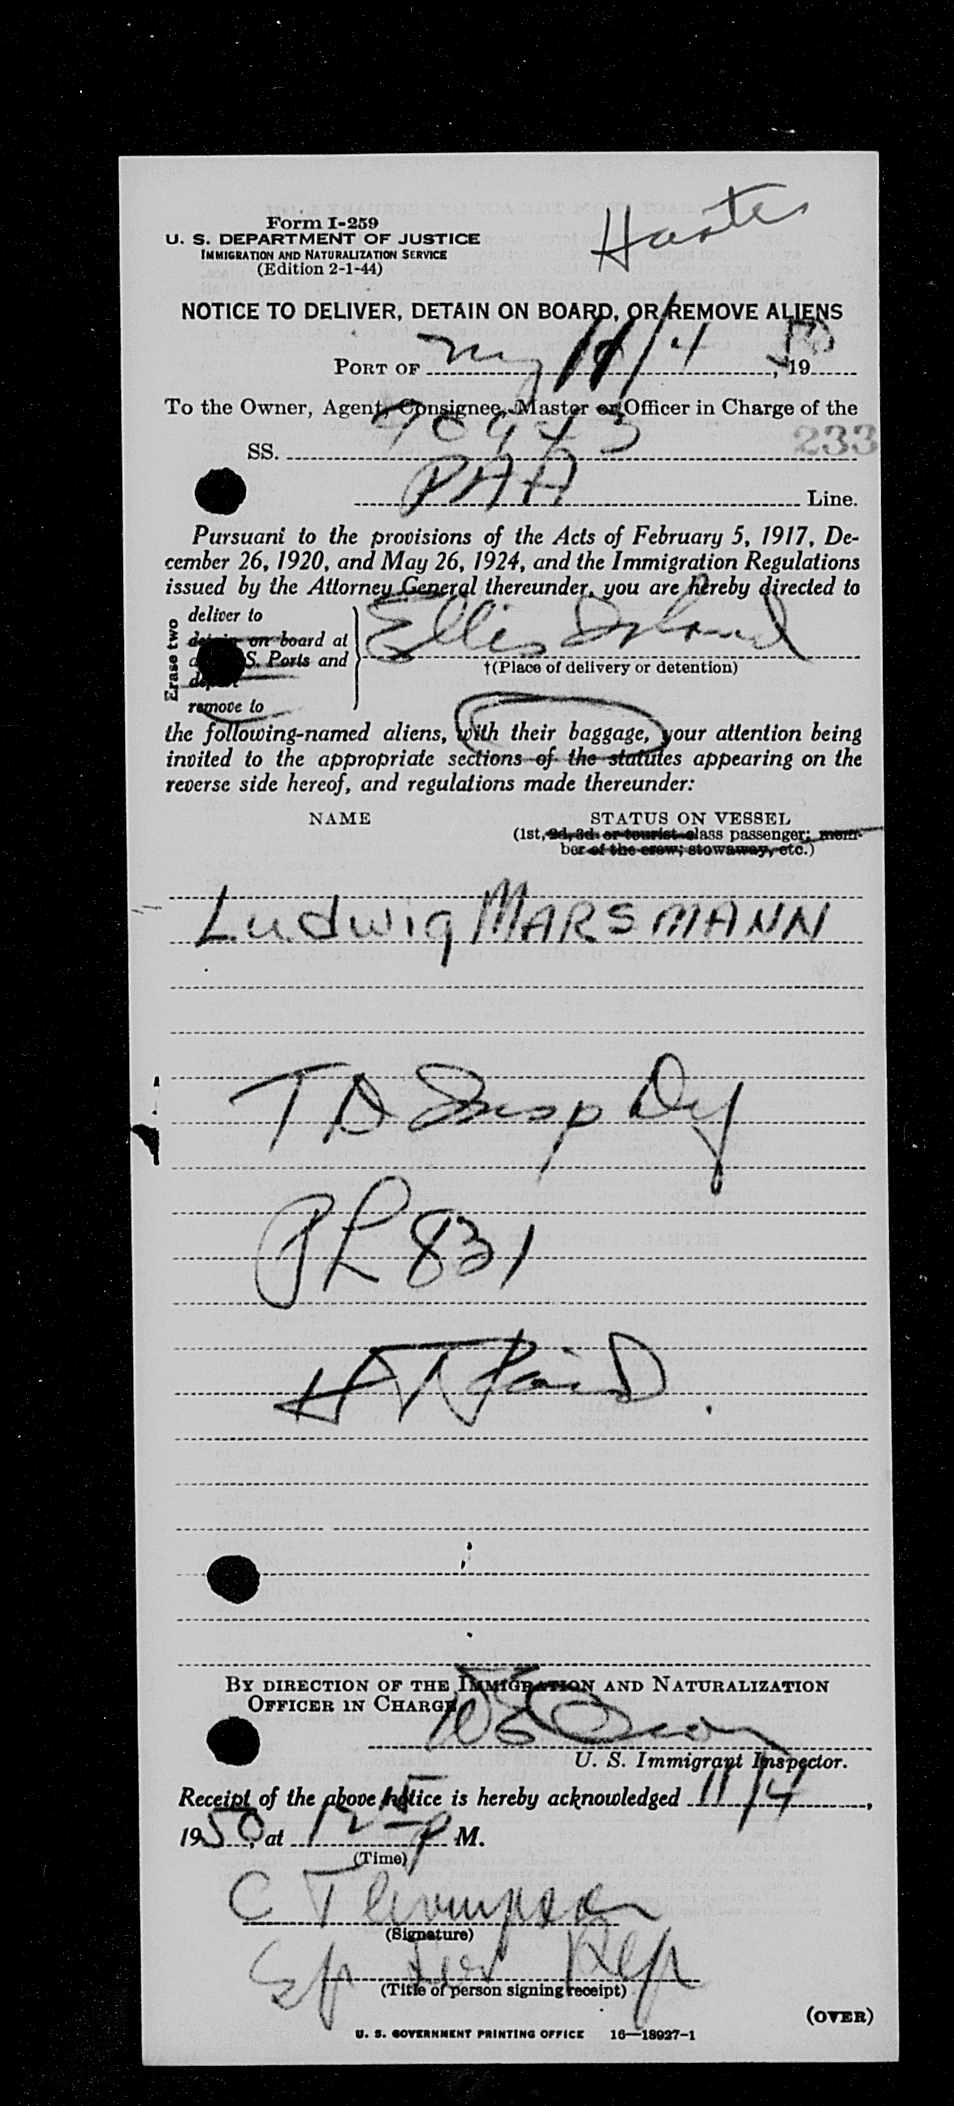 Form I-259
U. S. DEPARTMENT OF JUSTICE
IMMIGRATION AND NATURALIZATION SERVICE
(Edition 2-1-44)
NOTICE TO DELIVER, DETAIN ON BOARD, OR REMOVE ALIENS
PORT OF NY 11/4, 1950
To the Owner, Agent, Consignee, Master or Officer in Charge of the
SS. 90943
233
PAA Line.
Pursuant to the provisions of the Acts of February 5, 1917, De-
cember 26, 1920, and May 26, 1924, and the Immigration Regulations
issued by the Attorney General thereunder, you are hereby directed to
Erase two
deliver to
detain on board at
S. Ports and
remove to
Ellis Island
†(Place of delivery or detention)
the following-named aliens, with their baggage, your attention being
invited to the appropriate sections of the statutes appearing on the
reverse side hereof, and regulations made thereunder:
NAME STATUS ON VESSEL
(1st, 2d, 3d or tourist class passenger; mem-
ber of the crew; stowaway, etc.)
Ludwig MARSMANN
TD Insp Dy
PL 831
HT Paid
BY DIRECTION OF THE IMMIGRATION AND NATURALIZATION
OFFICER IN CHARGE
U. S. Immigrant Inspector.
Receipt of the above notice is hereby acknowledged 11/4,
1950, at 12 P M.
(Time)
C Thompson
(Signature)
Rep
(Title of person signing receipt)
(OVER)
U. S. GOVERNMENT PRINTING OFFICE 16—18927-1